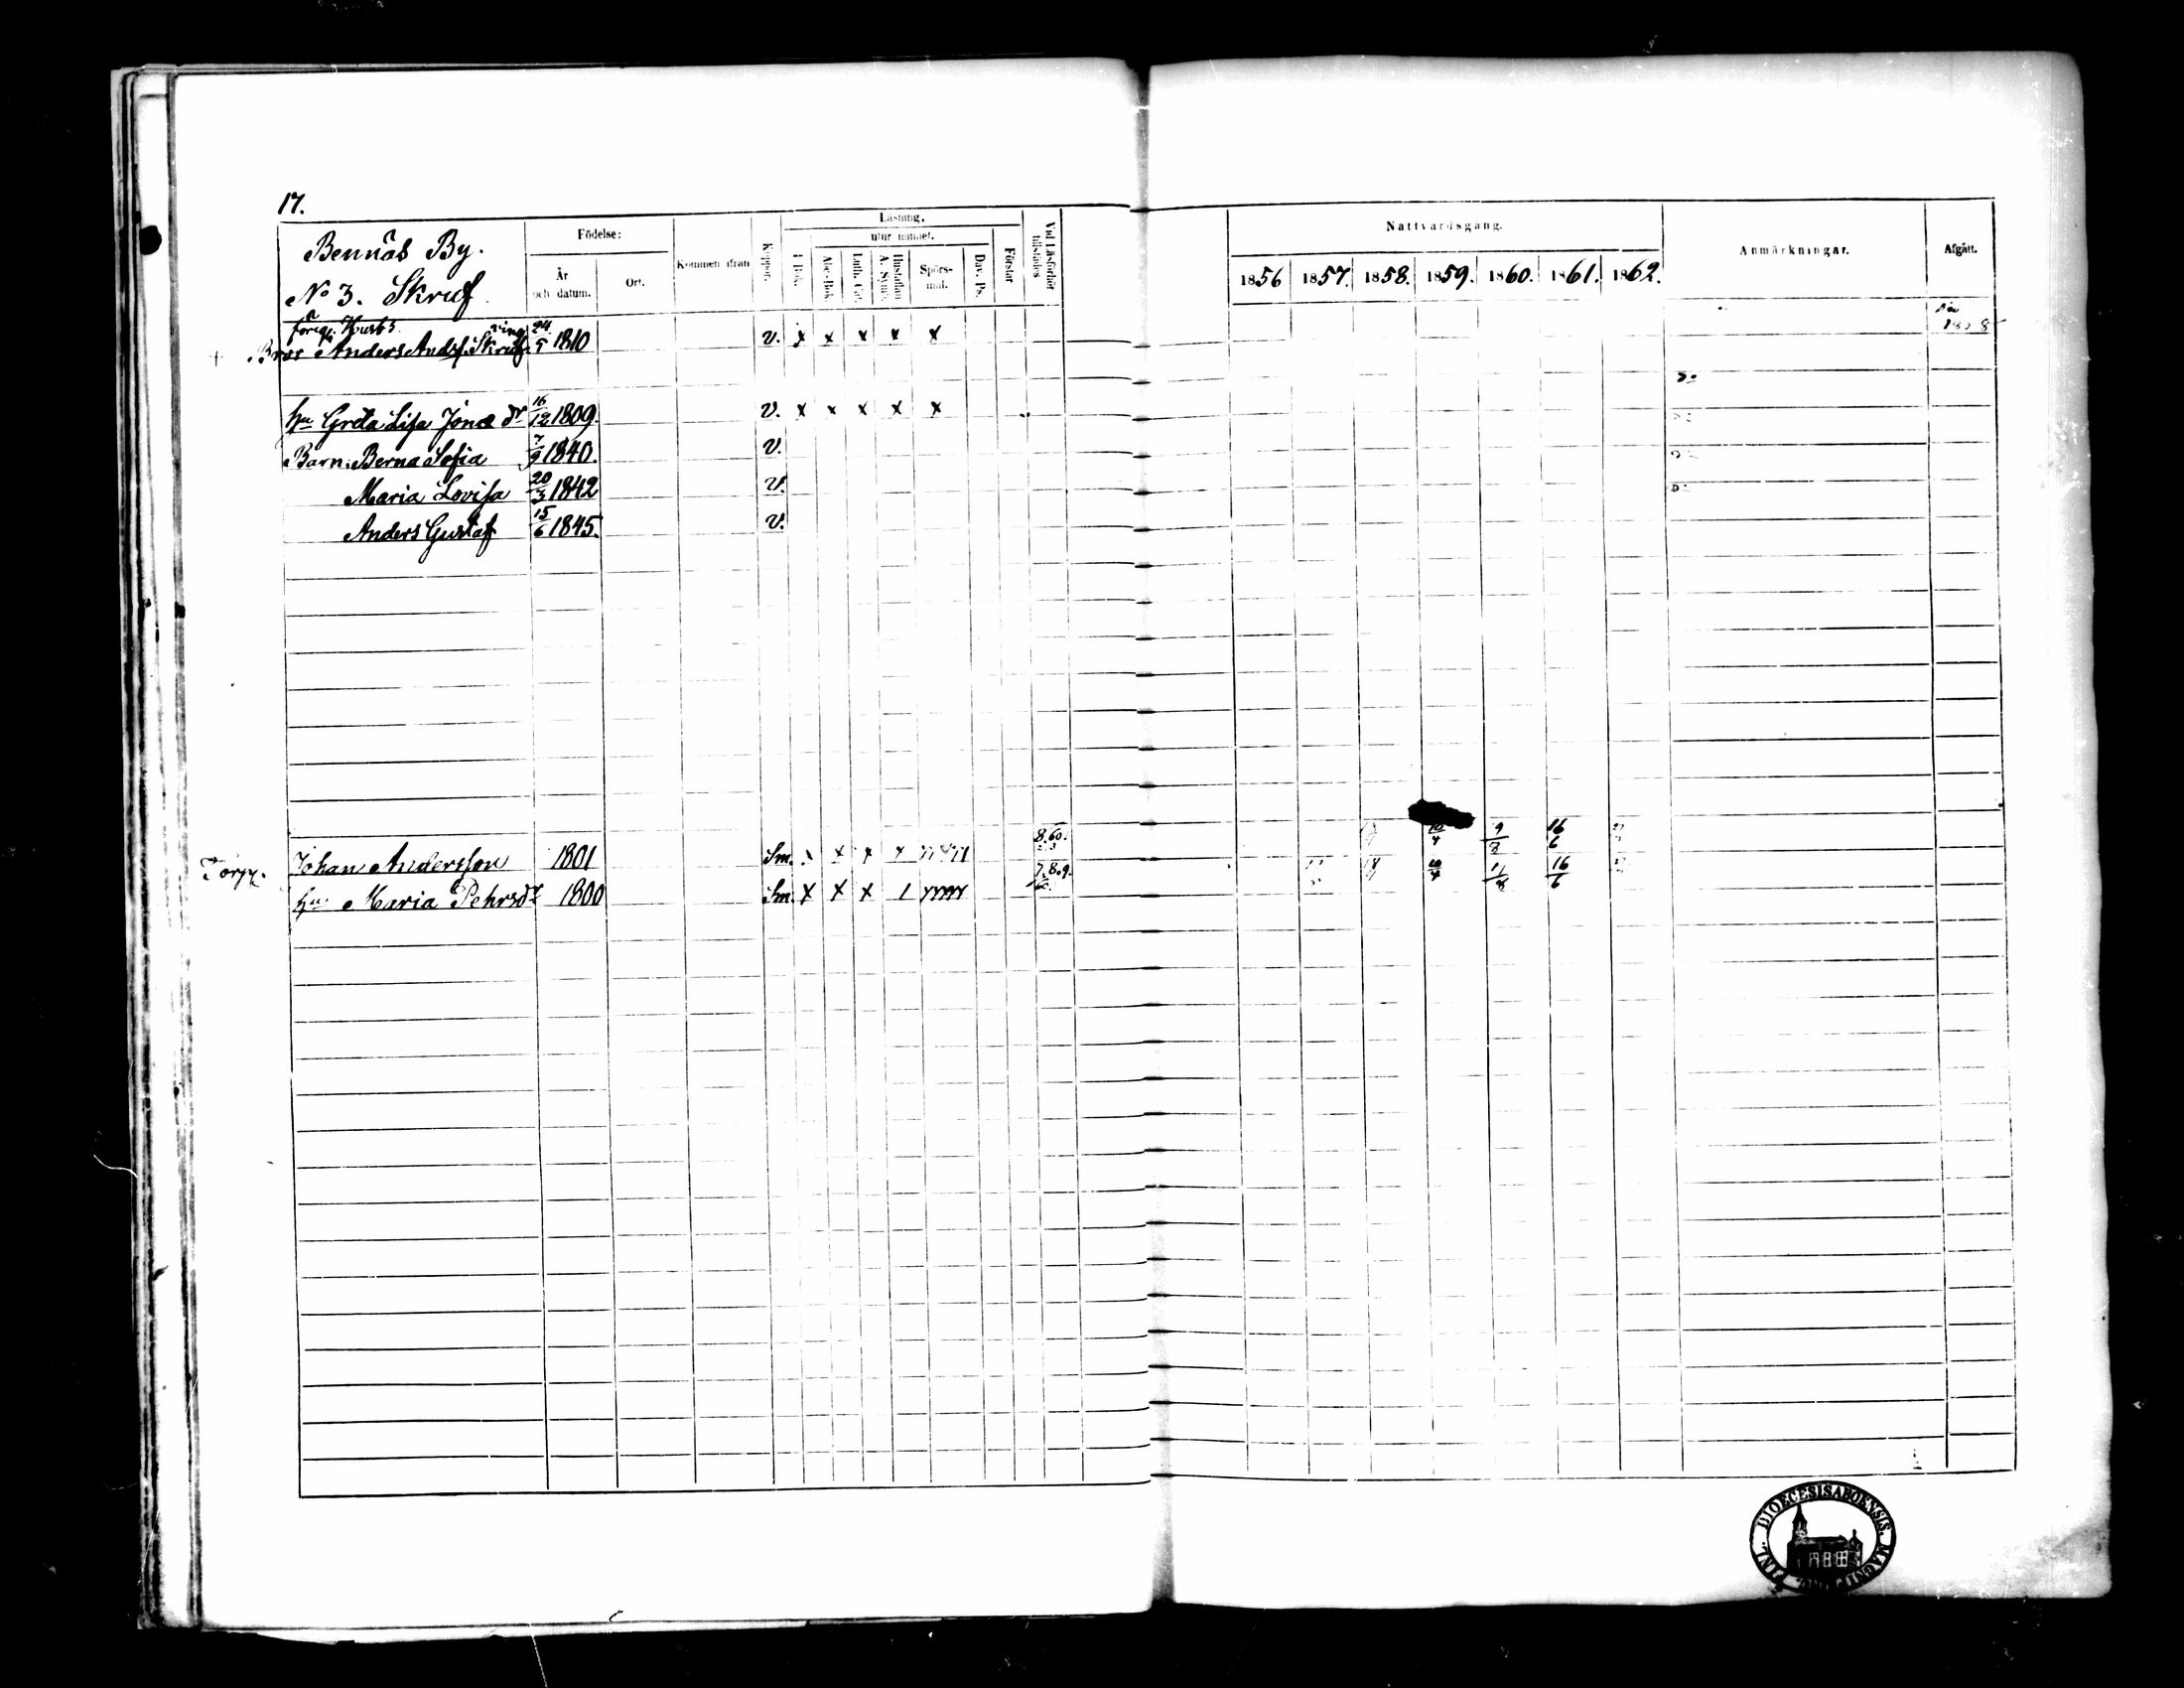 17.
Bennäs By.
No 3. Skruf
Födelse:
År och datum.
Ort.
Kommen ifrån
Koppor.
Läsning,
I Bok.
utur minnet.
Abc-Bok
Luth. Cat.
Hustaflan A. Symb.
Spörsmål.
Dav. Ps.
Förstår
Vid Läsförhör tillstädes
Nattvardsgång.
1856 1857. 1858. 1859. 1860. 1861. 1862.
Anmärkningar.
Afgått.
förige Husb
Anders Andss. Skruf 24/5 1810 v. x x x x x
hu Greta Lisa Jonæ dr 16/12 1809. v. x x x x x
Barn: Berna Sofia 7/9 1840. v.
Maria Lovisa 20/3 1842 v.
Anders Gustaf 15/6 1845. v.
Torp.
Johan Andersson 1801 Sm. x x x 8.60. 9/8 16/6
hu Maria Pehrsdr 1800 Sm. x x x 7.8.9. 11/8 16/6
FINL. DIOECESIS ABOENSIS MAGNI